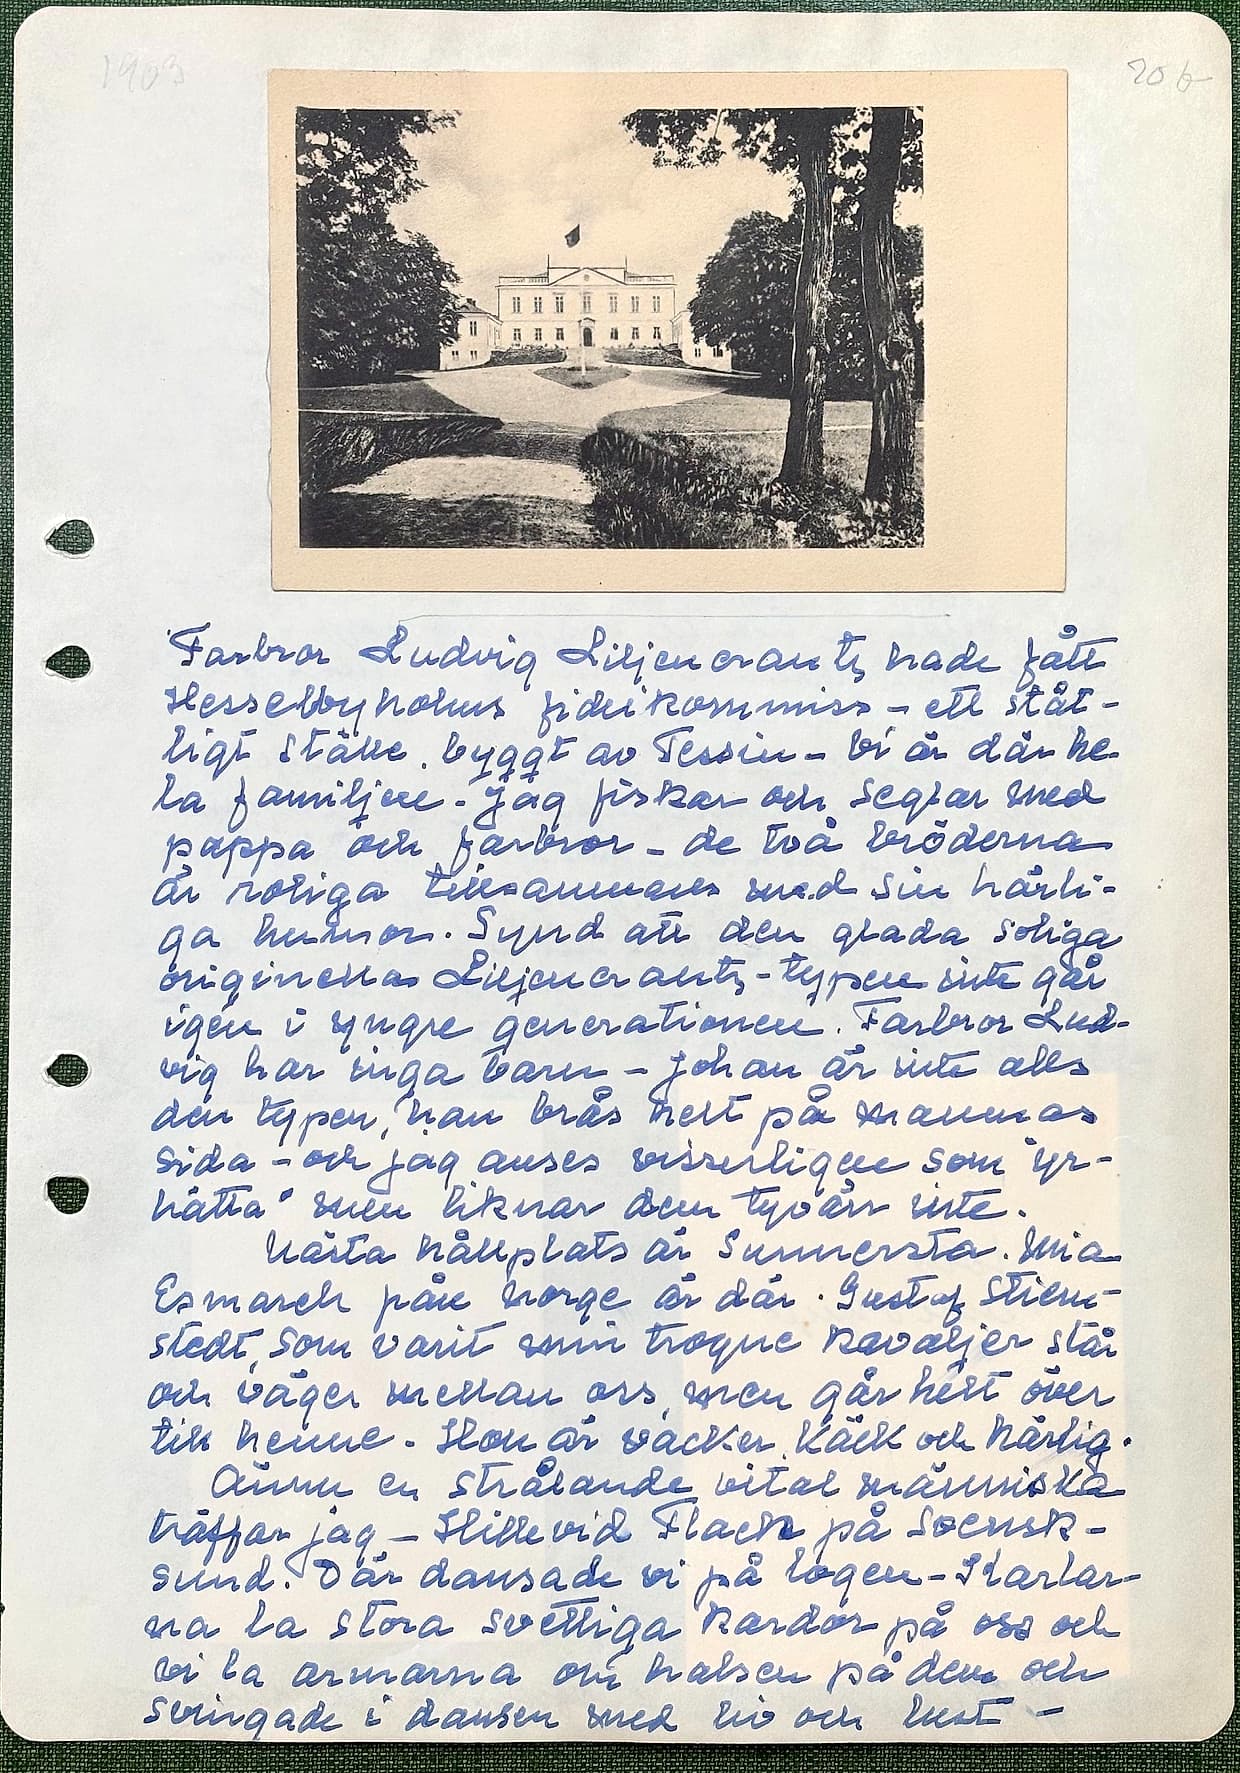 1903
20 b
Farbror Ludvig Liljencrants hade fått
Hesselbyholms fideikommiss – ett ståt-
ligt ställe, byggt av Tessin – Vi är där he-
la familjen – Jag fiskar och seglar med
pappa och farbror – de två bröderna
är roliga tillsammans med sin härli-
ga humor. Synd att den glada soliga
originella Liljencrants-typen inte går
igen i yngre generationen. Farbror Lud-
vig har inga barn – Johan är inte alls
den typen, han brås helt på mammas
sida – och jag anses visserligen som "yr-
hätta" men liknar dem tyvärr inte.
Nästa hållplats är Sunnersta. Mia
Esmarch från Norge är där. Gustaf Stiern-
stedt, som varit min trogne kavaljer står
och väger mellan oss, men går helt över
till henne. Hon är vacker, käck och härlig.
Ännu en strålande vital människa
träffar jag – Hillevid Flach på Svensk-
sund. Där dansade vi på logen – Karlar-
na la stora svettiga händer på oss och
vi la armarna om halsen på dem och
svingade i dansen med liv och lust –